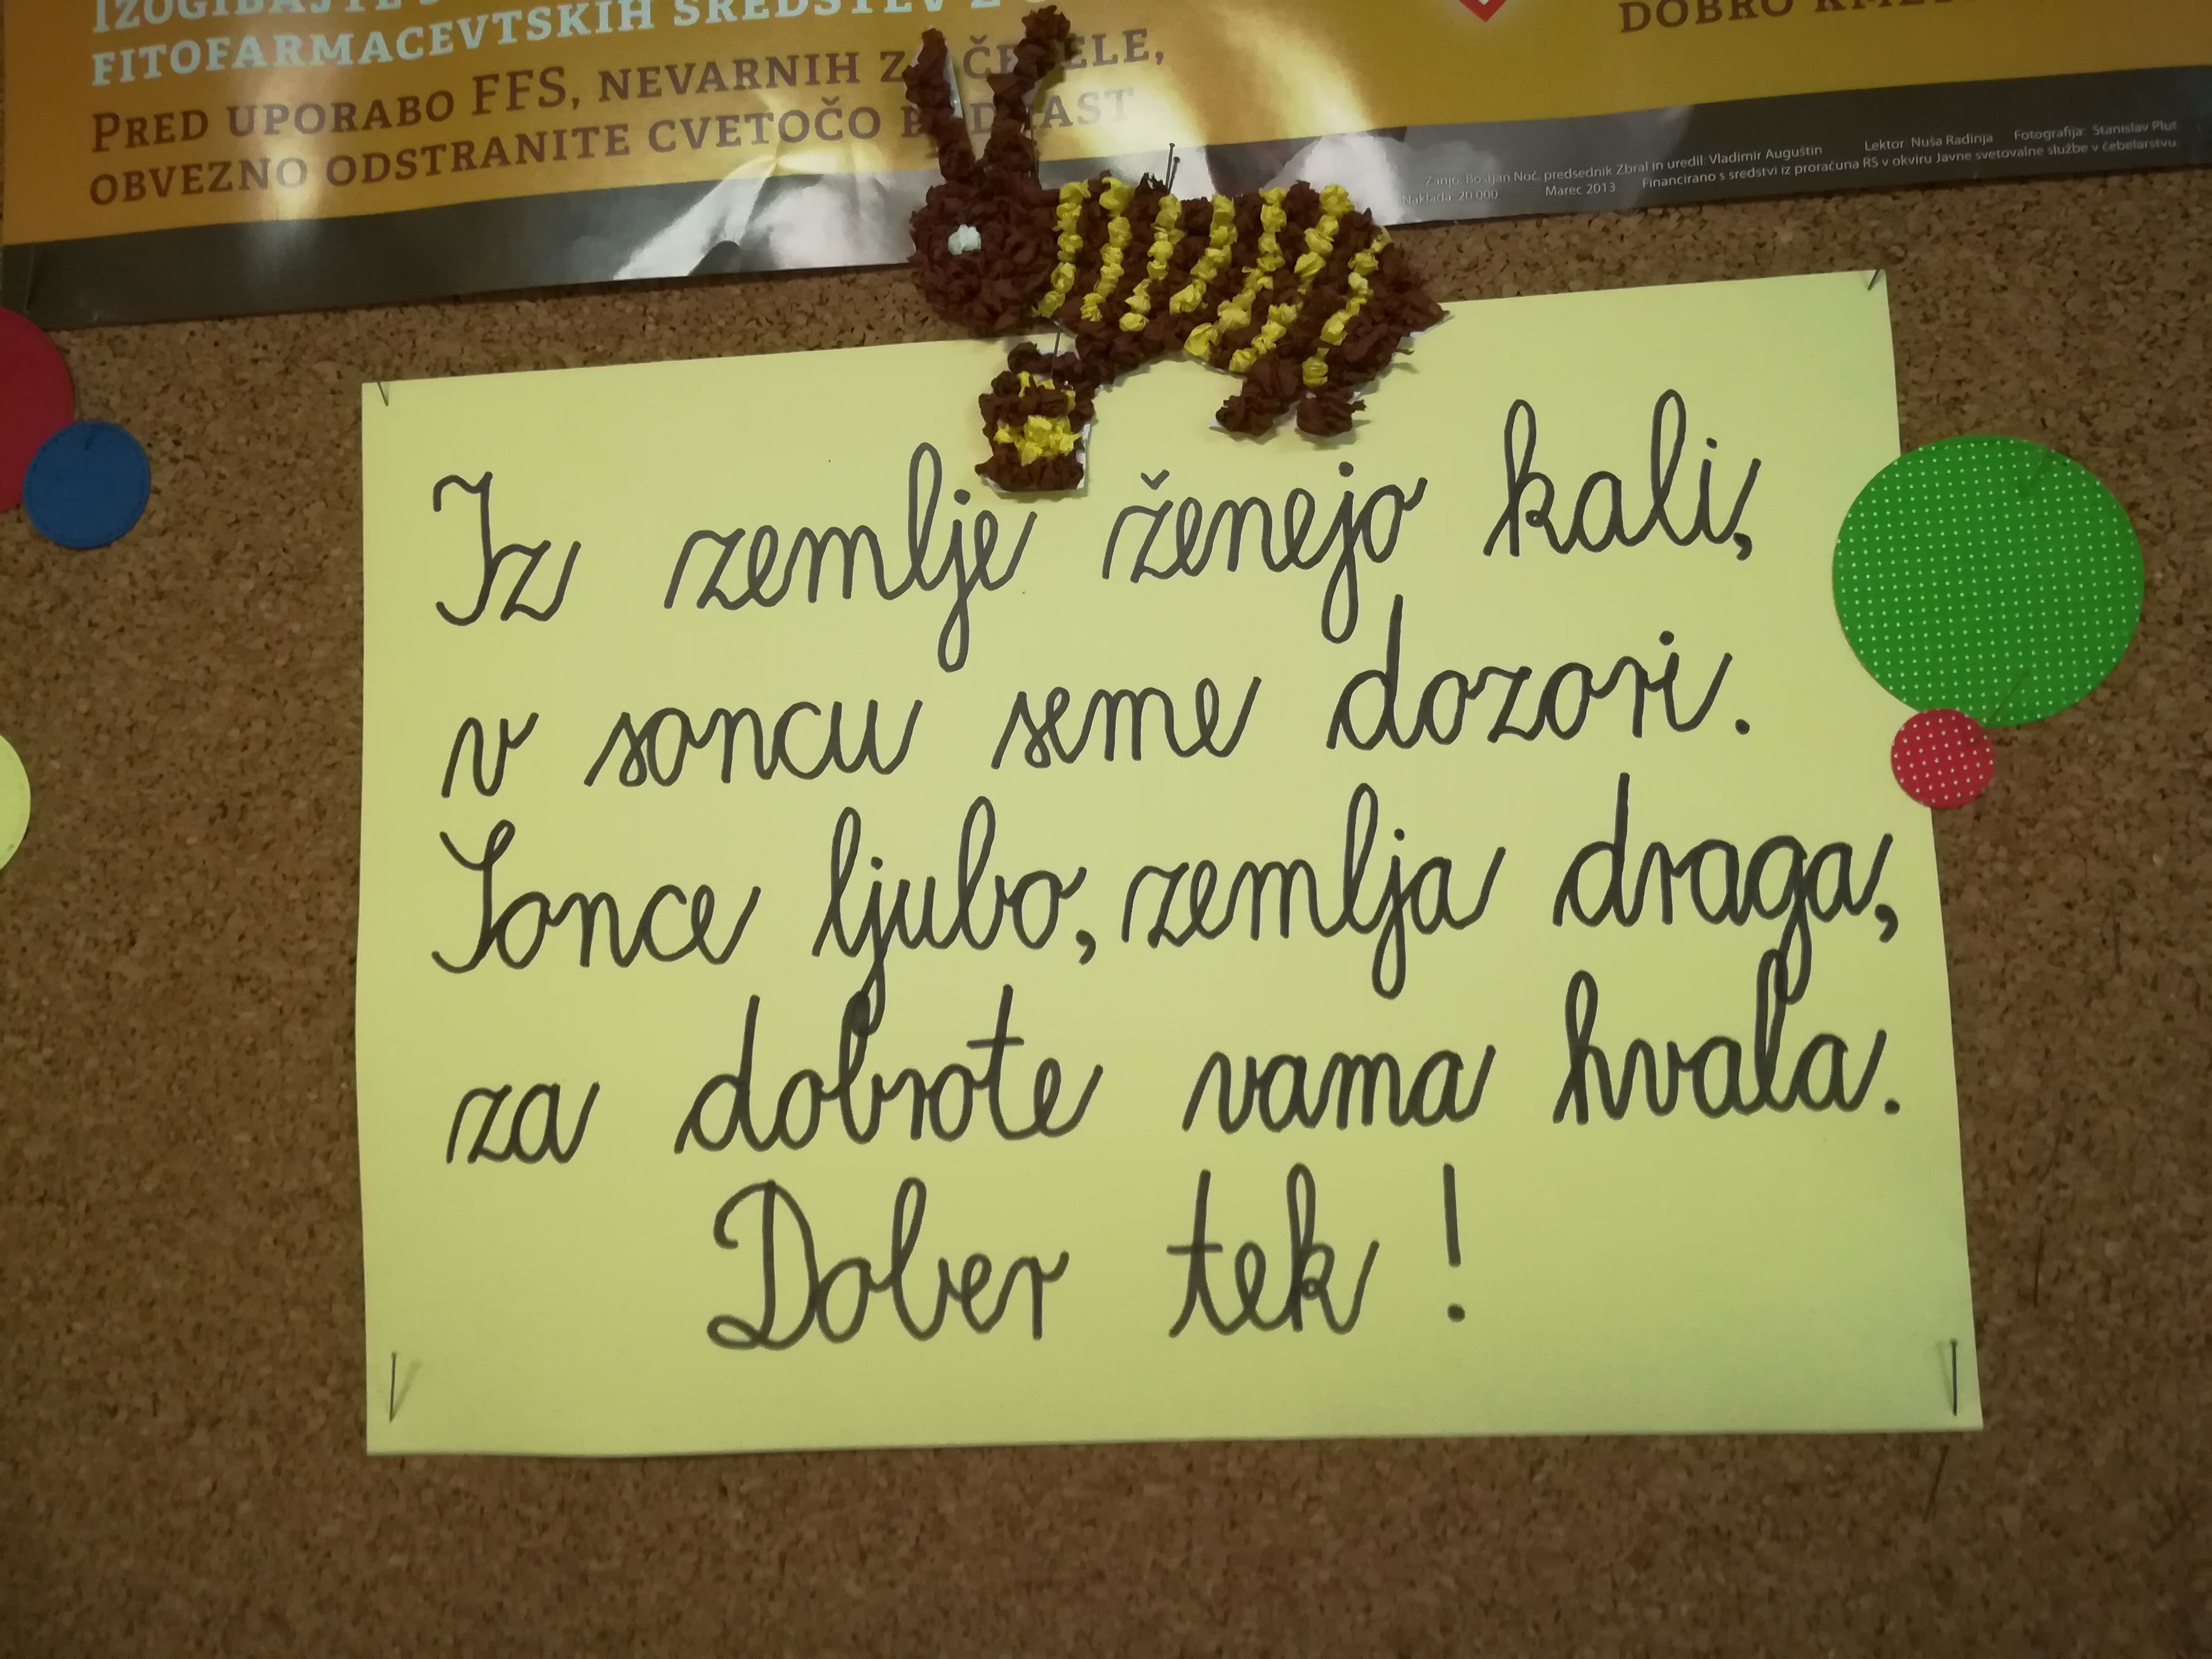 FITOFARMACEVTSKIH SREDSTEV
PRED UPORABO FFS, NEVARNIH
OBVEZNO ODSTRANITE CVETOČO
DOBRO
Lektor: Nuša Radinja Fotografija: Stanislav Plut
Zanjo: Boštjan Noč, predsednik Zbral in uredil: Vladimir Auguštin
Naklada: 20 000 Marec 2013 Financirano s sredstvi iz proračuna RS v okviru Javne svetovalne službe v čebelarstvu.
Iz zemlje ženejo kali,
v soncu seme dozori.
Sonce ljubo, zemlja draga,
za dobrote vama hvala.
Dober tek!